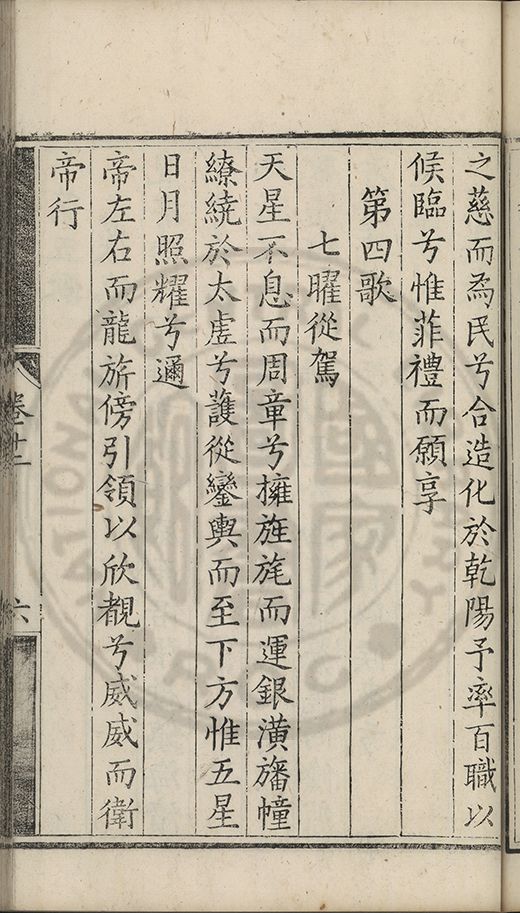 之慈而爲民兮合造化於乾陽予率百職以
候臨兮惟菲禮而願享
第四歌
七曜從駕
天星不息而周章兮擁旌旄而運銀潢旛幢
繚繞於太虛兮䕶從鑾輿而至下方惟五星
日月照耀兮邇
帝左右而龍旂傍引領以欣覩兮威威而衛
帝行
卷十二
六